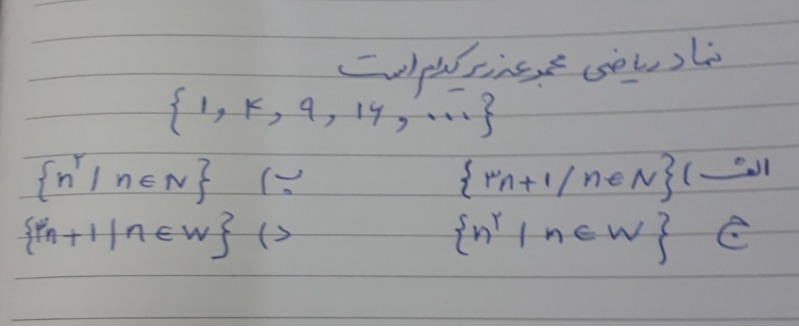 نماد ریاضی مجموعه زیر کدام است
{۱, ۴, ۹, ۱۶, ...}
الف) {۳n+۱ / n∈N} ب) {n^۲ | n∈N}
ج {n^۲ | n∈W} د) {۳n+۱ | n∈W}